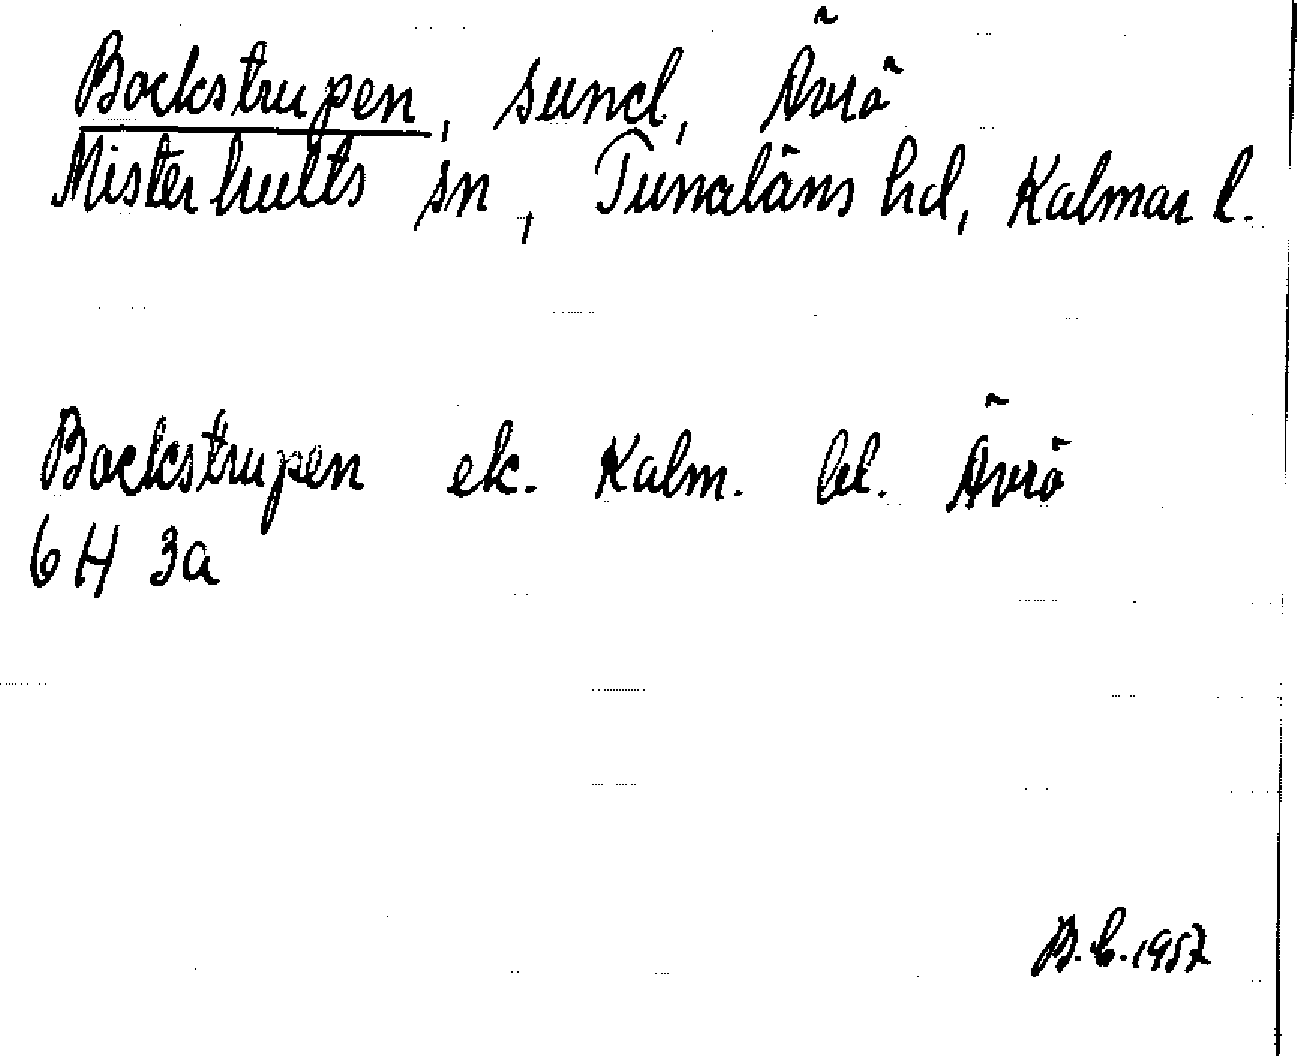 Bockstrupen, sund, Ävrö
Misterhults sn, Tunaläns hd, Kalmar l.
Bockstrupen ek. Kalm. bl. Ävrö
6H 3a
B.C. 1957